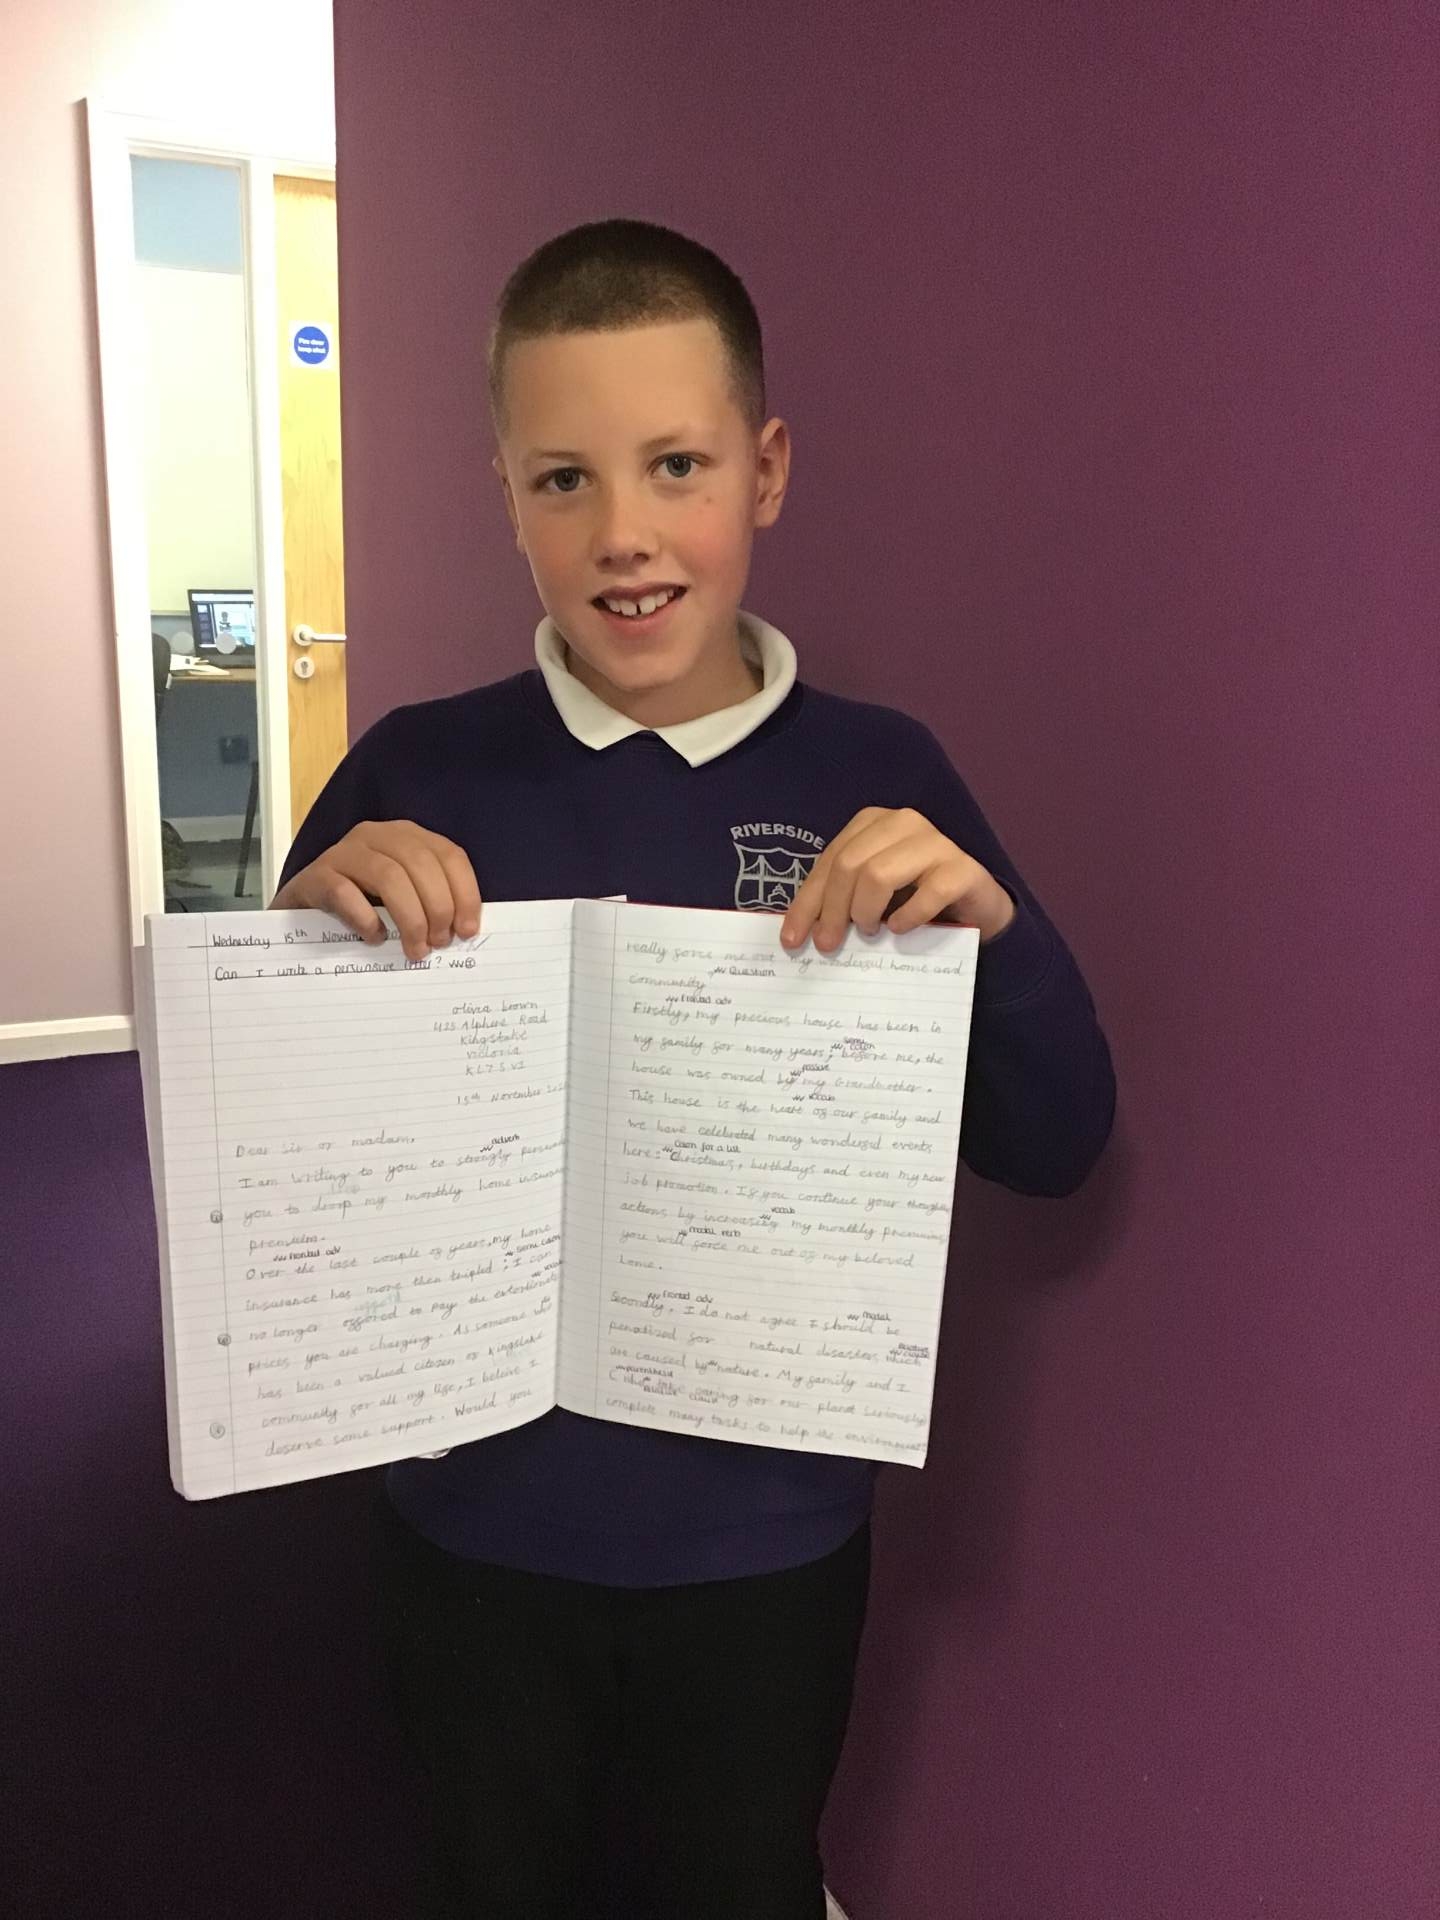 Fire door
keep shut
RIVERSIDE
Wednesday 15th
Can I write a persuasive letter?
olivia brown
425 Alphine Road
Kingslake
victoria
15th November
Dear Sir or madam,
adverb
I am writing to you to strongly
you to drop my monthly home
premium.
fronted adv
Over the last couple of years, my home
semi colon
insurance has more then tripled; I can
vocab
no longer to pay the
prices you are charging. As someone who
has been a valued citizen of Kingslake
community for all my life, I beleive I
deserve some support. Would you
really force me out my wonderful home and
Question
community
fronted adv
Firstly, my precious house has been in
semi
colon
my family for many years; before me, the
passive
house was owned by my Grandmother.
vocab
This house is the heart of our family and
we have celebrated many wonderful events
colon for a list
here: Christmas, birthdays and even my new
job promotion. If you continue your
vocab
actions by increasing my monthly premiums
modal verb
you will force me out of my beloved
home.
fronted adv
modal
Secondly, I do not agree I should be
penalized for natural disasters which
are caused by nature. My family and I
parenthesis
(who take caring for our planet seriously
complete many tasks to help the